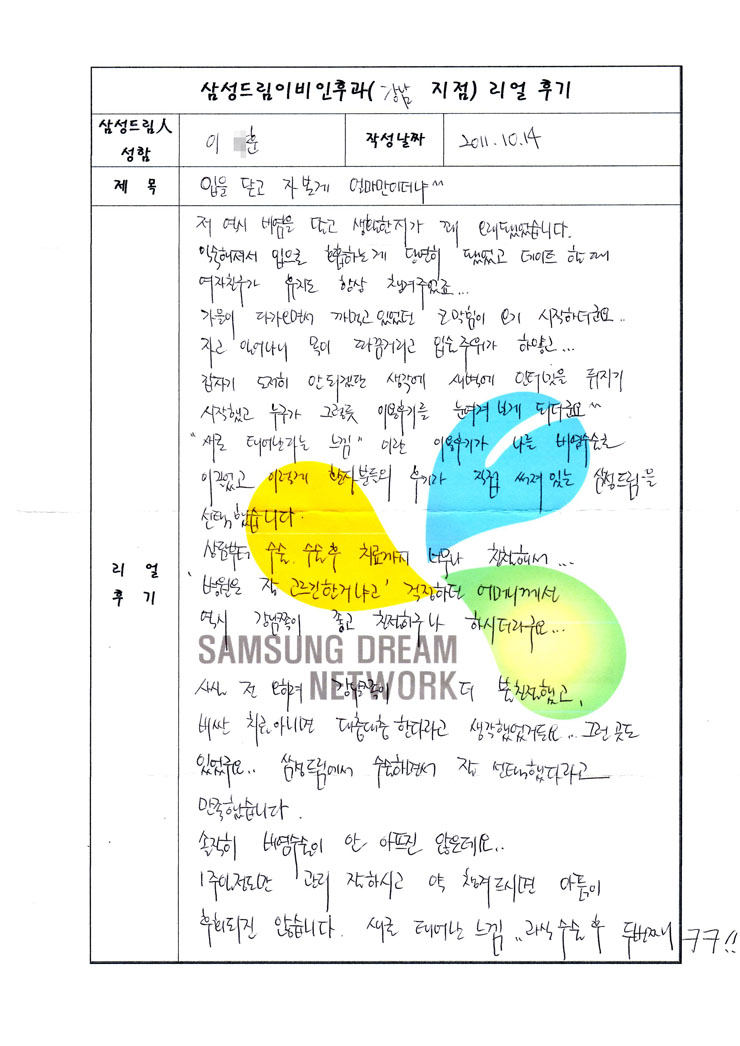 삼성드림이비인후과(강남 지점) 리얼 후기
삼성드림人 성함
이 훈
작성날짜
2011.10.14
제 목
입을 닫고 자보게 얼마만이더냐^^
리얼 후기
저 역시 비염을 달고 생활한지가 꽤 오래됐었습니다.
익숙해져서 입으로 호흡하는게 당연히 됐었고 데이트 할때
여자친구가 휴지도 항상 챙겨주었죠...
가을이 다가오면서 까먹고 있었던 코막힘이 오기 시작하더군요..
자고 일어나니 목이 따끔거리고 입술주위가 하얗고...
갑자기 도저히 안되겠단 생각에 새벽에 인터넷을 뒤지기
시작했고 누구가 그렇듯 이용후기를 눈여겨 보게 되더군요^^
"새로 태어나는 느낌" 이란 이용후기가 나를 비염수술로
이끌었고 이렇게 환자분들의 후기가 직접 써져있는 삼성드림을
선택했습니다.
상담부터 수술, 수술후 치료까지 너무나 친절해서...
'병원은 잘 고르긴한거냐고' 걱정하던 어머니께선
역시 강남쪽이 좋고 친절하구나 하시더라구요...
SAMSUNG DREAM
NETWORK
사실 전 오히려 강남쪽이 더 불친절했고,
비싼 치료아니면 대충대충 한다라고 생각했었거든요... 그런 곳도
있었구요.. 삼성드림에서 수술하면서 잘 선택했다라고
만족했습니다.
솔직히 비염수술이 안 아프진 않은데요..
1주일정도만 관리 잘하시고 약 챙겨드시면 아픔이
후회되진 않습니다. 새로 태어난 느낌.. 라식수술 후 두번째네 ㅋㅋ!!